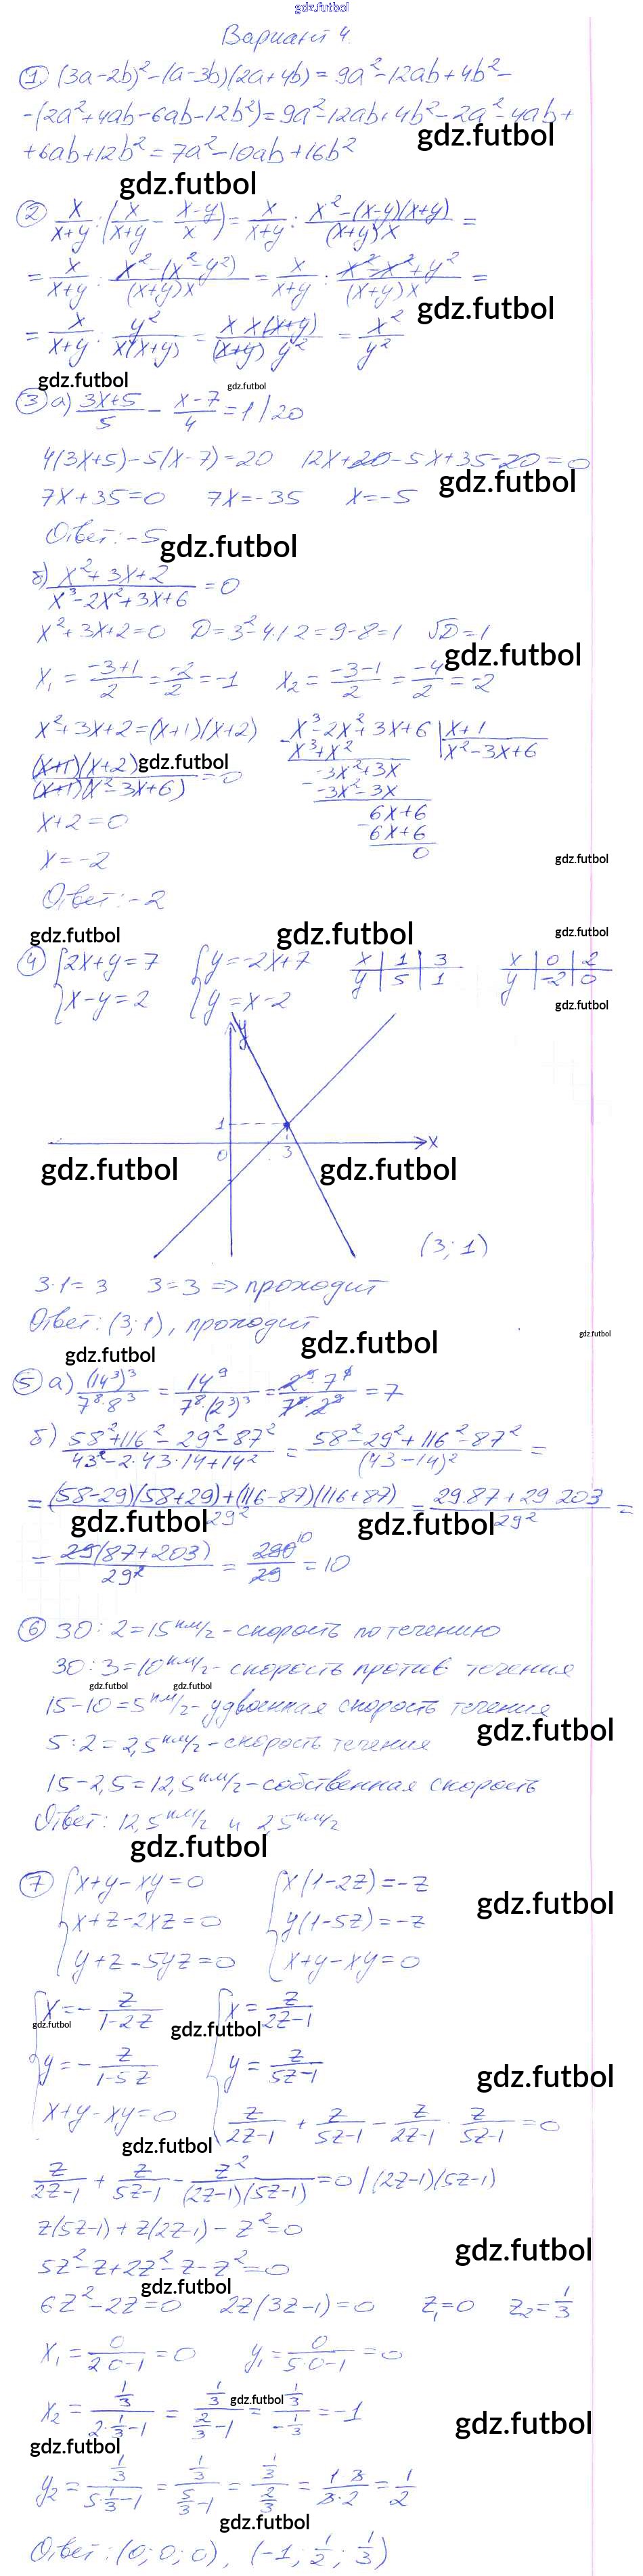 gdz.futbol
Вариант 4.
① (3a-2b)² - (a-3b)(2a+4b) = 9a² - 12ab + 4b² -
-(2a²+4ab-6ab-12b²) = 9a² - 12ab + 4b² - 2a² - 4ab +
gdz.futbol
+6ab+12b² = 7a² - 10ab + 16b²
gdz.futbol
② x/(x+y) : (x/(x+y) - (x-y)/x) = x/(x+y) : (x²-(x-y)(x+y))/((x+y)x) =
= x/(x+y) : (x²-(x²-y²))/((x+y)x) = x/(x+y) : (x²-x²+y²)/((x+y)x) =
gdz.futbol
= x/(x+y) : y²/(x(x+y)) = (x·x(x+y))/((x+y)y²) = x²/y²
gdz.futbol gdz.futbol
③ а) (3x+5)/5 - (x-7)/4 = 1 /·20
4(3x+5) - 5(x-7) = 20 12x+20-5x+35-20=0
gdz.futbol
7x+35=0 7x=-35 x=-5
Ответ: -5
gdz.futbol
б) (x²+3x+2)/(x³-2x²+3x+6) = 0
x²+3x+2=0 D=3²-4·1·2=9-8=1 √D=1
gdz.futbol
x₁ = (-3+1)/2 = -2/2 = -1 x₂ = (-3-1)/2 = -4/2 = -2
x²+3x+2=(x+1)(x+2) x³-2x²+3x+6 | x+1
x³+x² x²-3x+6
((x+1)(x+2))/((x+1)(x²-3x+6)) = 0 -3x²+3x
gdz.futbol
-3x²-3x
x+2=0 6x+6
6x+6
x=-2 0
gdz.futbol
Ответ: -2
gdz.futbol gdz.futbol gdz.futbol
④ {2x+y=7 {y=-2x+7 x | 1 | 3 x | 0 | 2
{x-y=2 {y=x-2 y | 5 | 1 y | -2 | 0
gdz.futbol
y
1
0 3 x
gdz.futbol gdz.futbol
(3; 1)
3·1=3 3=3 => проходит
Ответ: (3; 1), проходит
gdz.futbol
gdz.futbol gdz.futbol
⑤ а) (14³)³/(7⁸·8³) = 14⁹/(7⁸·(2³)³) = (2⁹·7⁹)/(7⁸·2⁹) = 7
б) (58²+116²-29²-87²)/(43²-2·43·14+14²) = (58²-29²+116²-87²)/(43-14)² =
= ((58-29)(58+29)+(116-87)(116+87))/29² = (29·87+29·203)/29² =
gdz.futbol gdz.futbol
= (29(87+203))/29² = 290/29 = 10
10
⑥ 30:2=15 км/ч - скорость по течению
30:3=10 км/ч - скорость против течения
gdz.futbol gdz.futbol
15-10=5 км/ч - удвоенная скорость течения
gdz.futbol
5:2=2,5 км/ч - скорость течения
15-2,5=12,5 км/ч - собственная скорость
Ответ: 12,5 км/ч и 2,5 км/ч
gdz.futbol
⑦ {x+y-xy=0 {x(1-2z)=-z
gdz.futbol
{x+z-2xz=0 {y(1-5z)=-z
{y+z-5yz=0 {x+y-xy=0
{x=-z/(1-2z) {x=z/(2z-1)
gdz.futbol gdz.futbol
{y=-z/(1-5z) {y=z/(5z-1)
gdz.futbol
{x+y-xy=0 {z/(2z-1) + z/(5z-1) - z/(2z-1) · z/(5z-1) = 0
gdz.futbol
z/(2z-1) + z/(5z-1) - z²/((2z-1)(5z-1)) = 0 /·(2z-1)(5z-1)
z(5z-1)+z(2z-1)-z²=0
gdz.futbol
5z²-z+2z²-z-z²=0
gdz.futbol
6z²-2z=0 2z(3z-1)=0 z₁=0 z₂=1/3
x₁ = 0/(2·0-1) = 0 y₁ = 0/(5·0-1) = 0
gdz.futbol
x₂ = (1/3)/(2·1/3-1) = (1/3)/(2/3-1) = (1/3)/(-1/3) = -1
gdz.futbol
gdz.futbol
y₂ = (1/3)/(5·1/3-1) = (1/3)/(5/3-1) = (1/3)/(2/3) = (1·3)/(3·2) = 1/2
gdz.futbol
Ответ: (0; 0; 0), (-1; 1/2; 1/3)